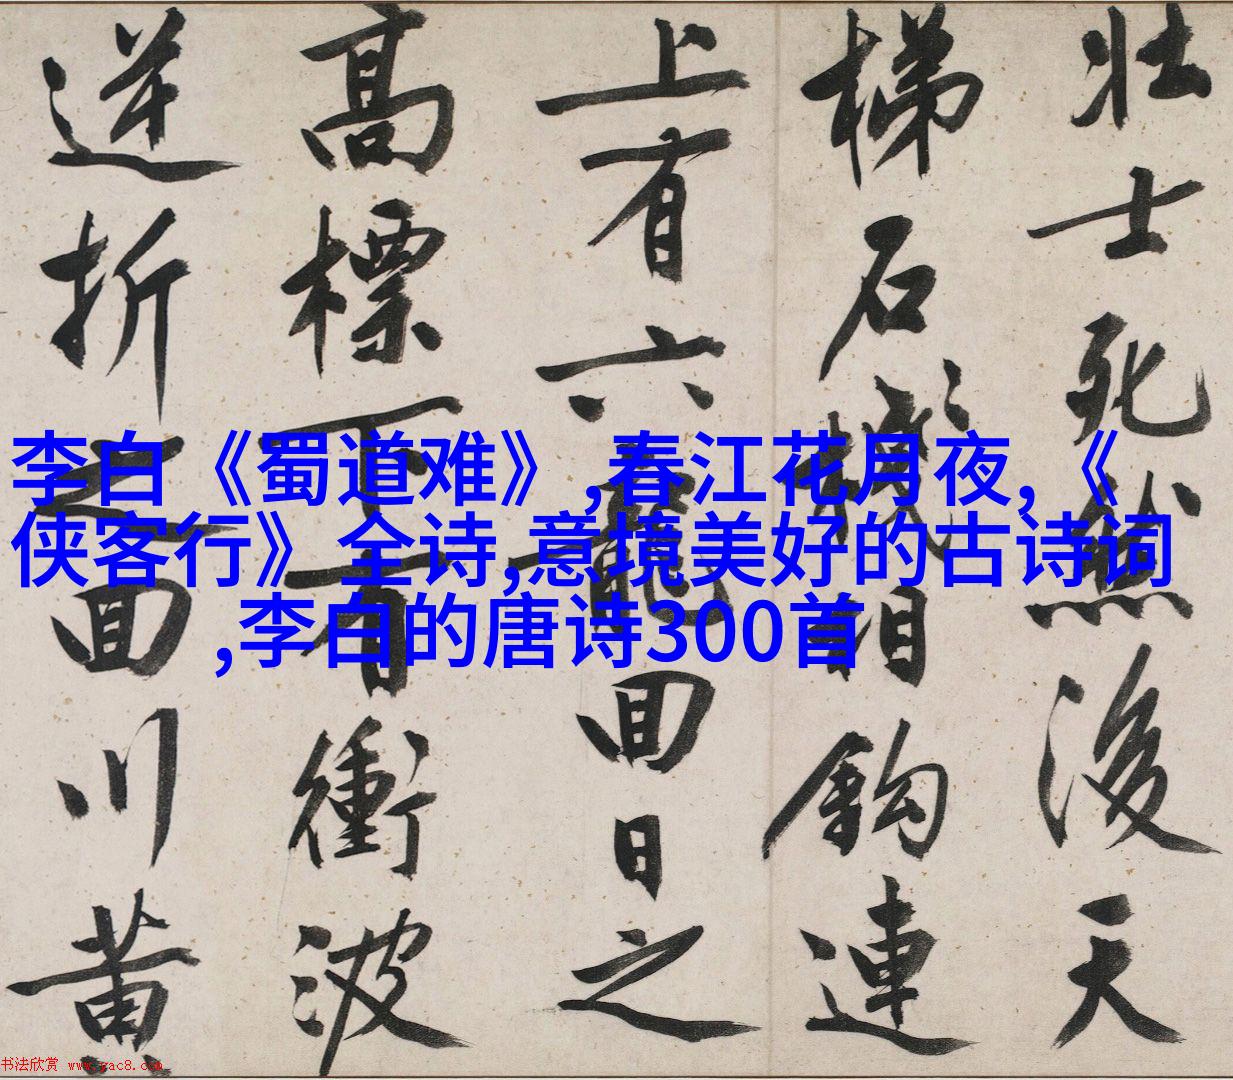 壯士死然後天
梯石棧相鈎連
上有六龍回日之
高標下有衝波
逆折之回川黃
李白《蜀道难》,春江花月夜,《
侠客行》全诗,意境美好的古诗词
,李白的唐诗300首
书法欣赏 www.yac8.com